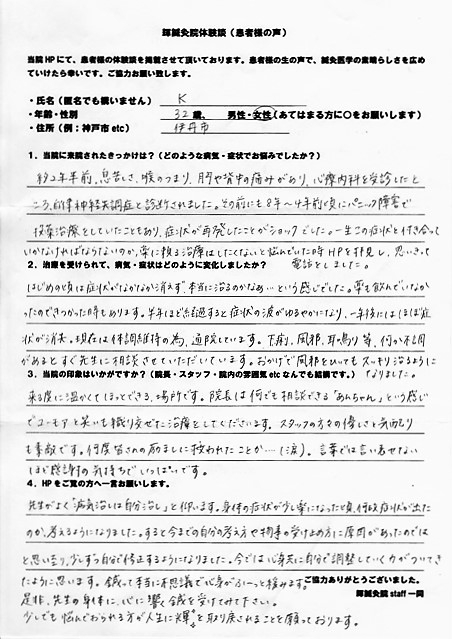 輝鍼灸院体験談（患者様の声）
当院HPにて、患者様の体験談を掲載させて頂いております。患者様の生の声で、鍼灸医学の素晴らしさを広
めていけたら幸いです。ご協力お願い致します。
・氏名（匿名でも構いません） K
・年齢・性別 32歳、 男性・女性（あてはまる方に○をお願いします）
・住所（例：神戸市etc） 伊丹市
1．当院に来院されたきっかけは？（どのような病気・症状でお悩みでしたか？）
約2年半前、息苦しさ、喉のつまり、胸や背中の痛みがあり、心療内科を受診したと
ころ、自律神経失調症と診断されました。その前にも8年～4年前頃にパニック障害で
投薬治療をしていたこともあり、症状が再発したことがショックでした。一生この症状と付き合って
いかなければならないのか、薬に頼る治療はしたくないと悩んでいた時HPを拝見し、思いきって
電話をしました。
2．治療を受けられて、病気・症状はどのように変化しましたか？
はじめの頃は症状がなかなか消えず、本当に治るのかなぁ…という感じでした。薬も飲んでいなか
ったのできつかった時もあります。半年ほど経過すると症状の波がゆるやかになり、一年後にはほぼ症
状が消失。現在は体調維持の為、通院しています。下痢、風邪、耳鳴り等、何か不調
があるとすぐ先生に相談させていただいています。おかげで風邪をひいてもスッキリ治るように
なりました。
3．当院の印象はいかがですか？（院長・スタッフ・院内の雰囲気etcなんでも結構です。）
来る度に温かくてほっとできる場所です。院長は何でも相談できる「あんちゃん」という感じ
でユーモアと笑いも織り交ぜた治療をしてくださいます。スタッフの方々の優しさと気配り
も素敵です。何度皆さんの励ましに救われたことか…（涙）。言葉では言い表せない
ほど感謝の気持ちでいっぱいです。
4．HPをご覧の方へ一言お願いします。
先生がよく「病気治しは自分治し」と仰います。身体の症状が少し楽になった頃、何故症状が出た
のか、考えるようになりました。すると今までの自分の考え方や物事の受け止め方に原因があったのでは
と思い当り、少しずつ自分で修正するようになりました。今では心身共に自分で調整していく力がついてき
たように思います。鍼って本当に不思議で心身がふーっと緩みます。
ご協力ありがとうございました。
是非、先生の身体に、心に響く鍼を受けてみて下さい。
輝鍼灸院 staff 一同
少しでも悩んでおられる方が人生に"輝"を取り戻されることを願っております。